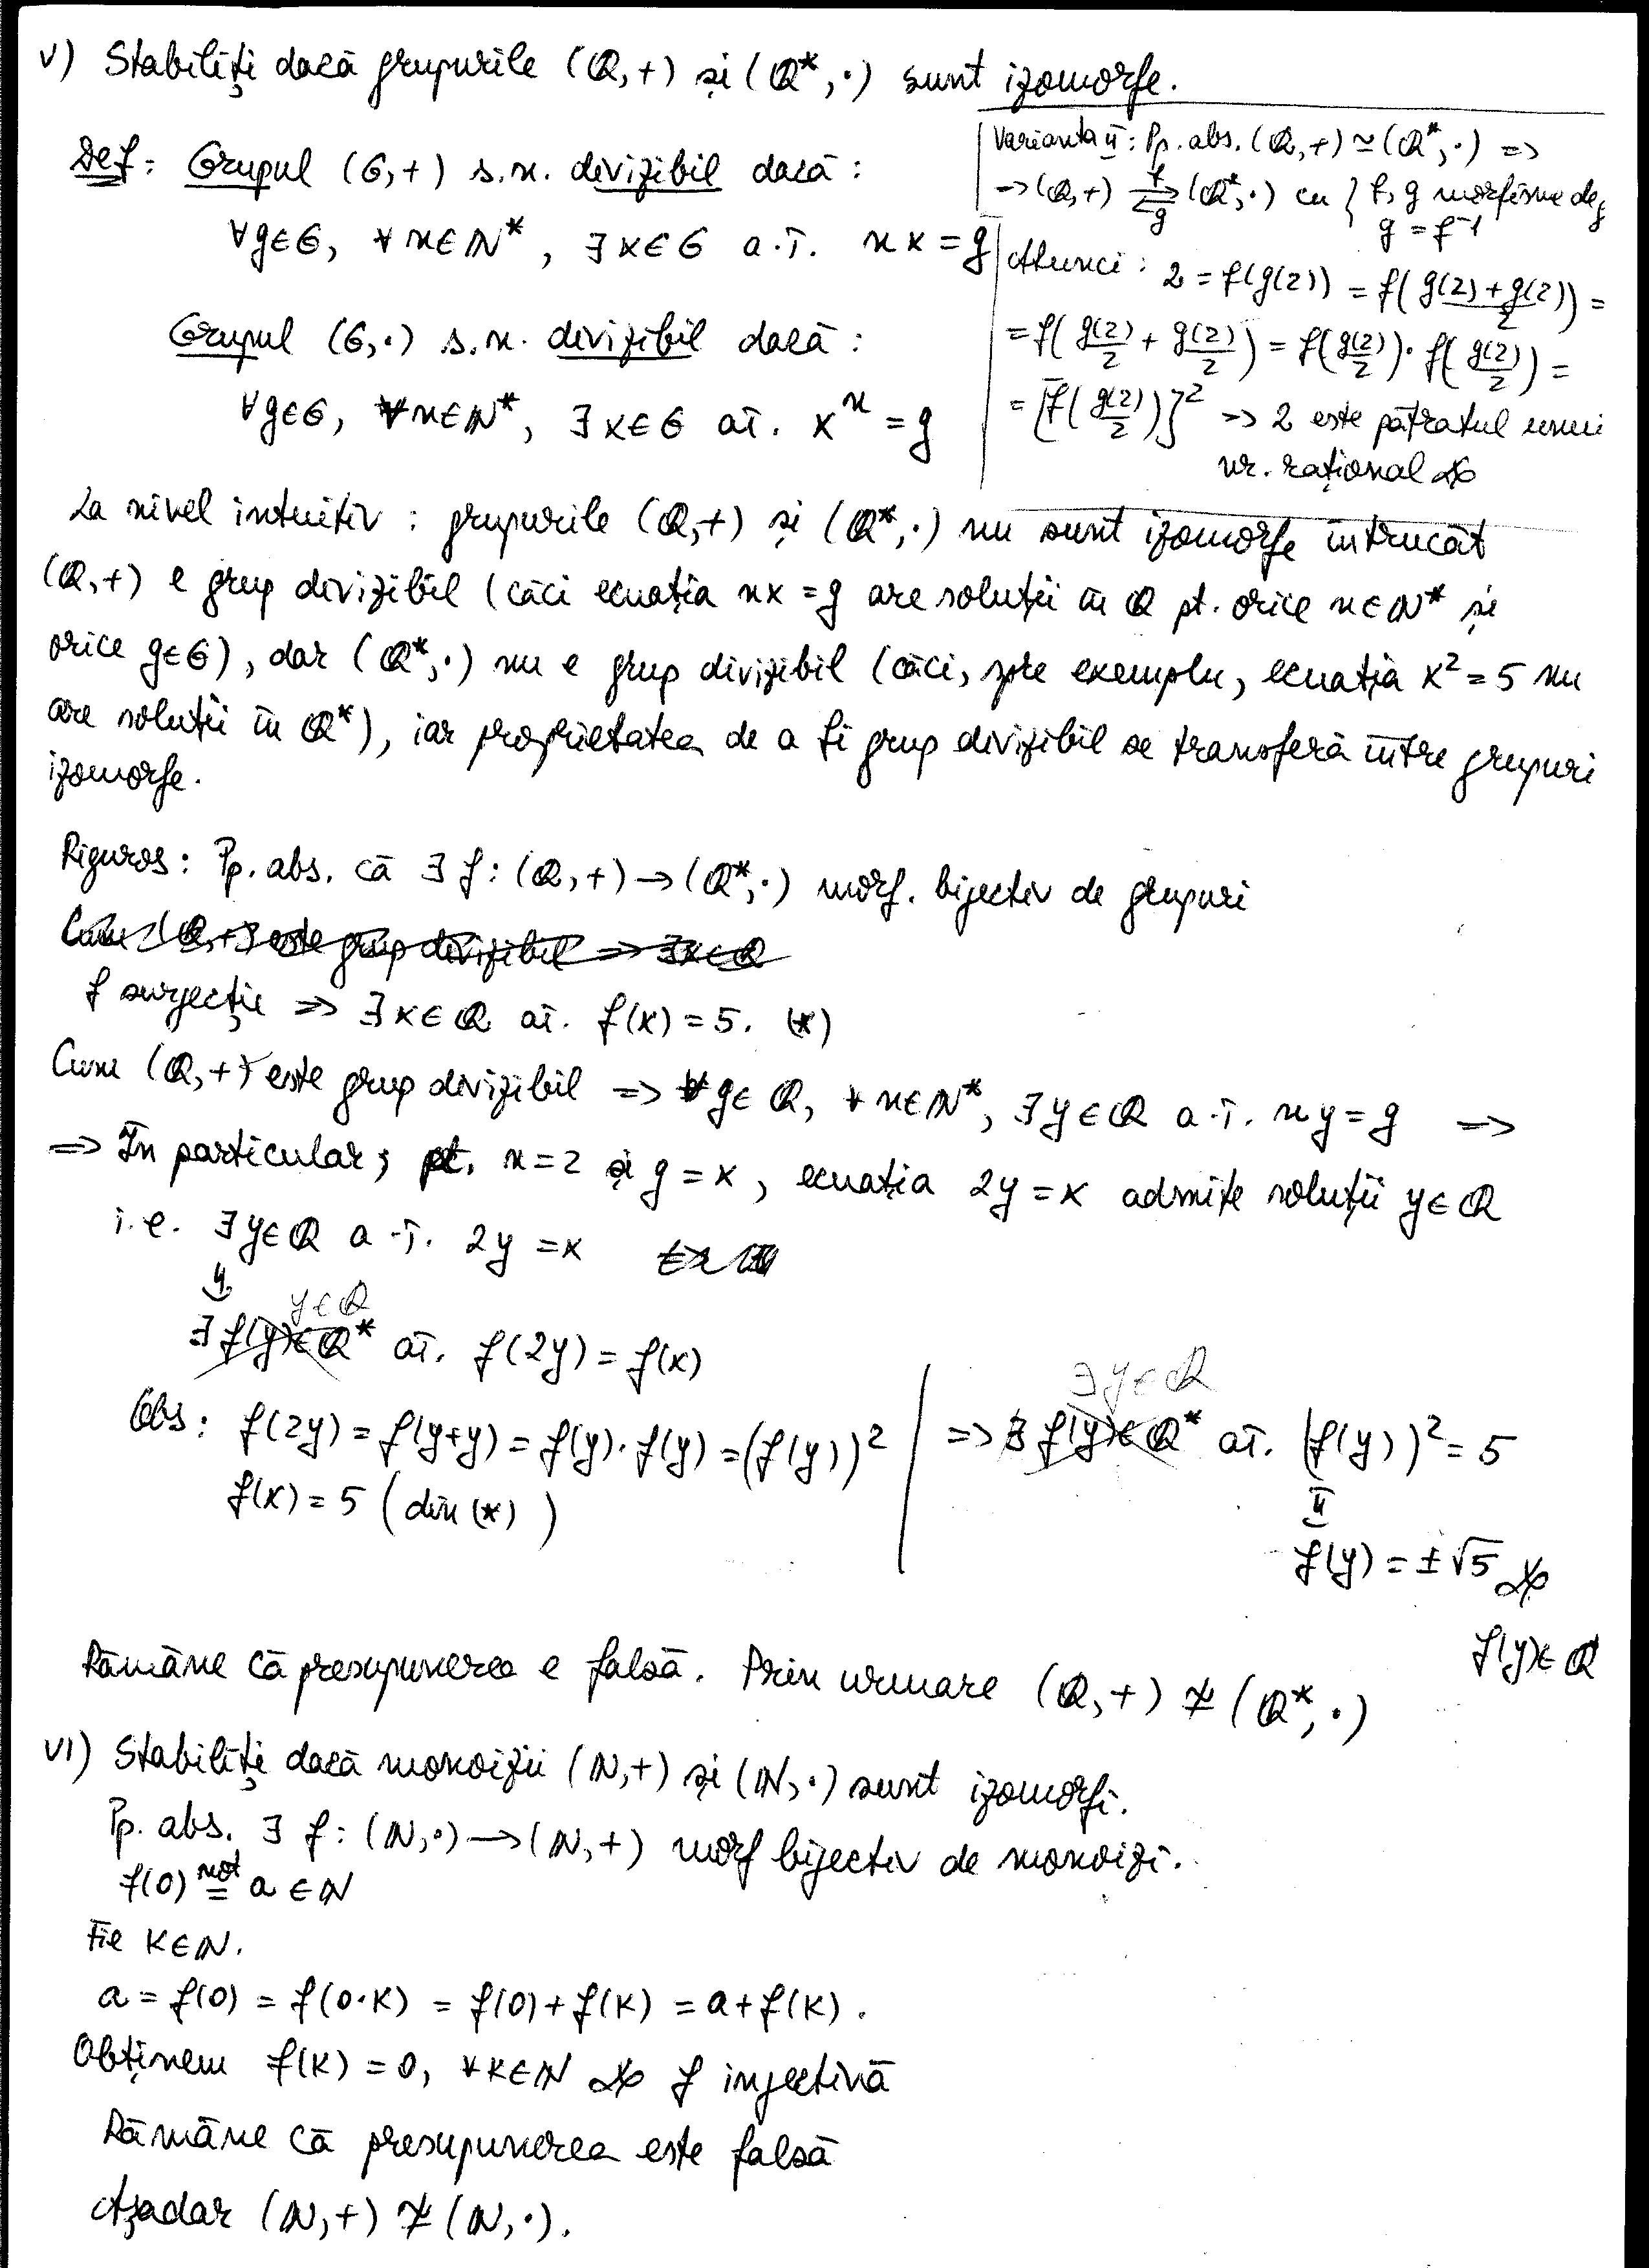 v) Stabiliți dacă grupurile (Q,+) și (Q*,·) sunt izomorfe.
Def: Grupul (G,+) s.n. divizibil dacă:
∀g∈G, ∀n∈N*, ∃x∈G a.î. nx=g
Grupul (G,·) s.n. divizibil dacă:
∀g∈G, ∀n∈N*, ∃x∈G aî. xⁿ=g
Varianta II: Pp. abs. (Q,+)≃(Q*,·) =>
=>(Q,+) ⇄ (Q*,·) cu { f, g morfisme de g
f
g
g=f⁻¹
Atunci: 2=f(g(2))=f((g(2)+g(2))/2)=
=f(g(2)/2+g(2)/2)=f(g(2)/2)·f(g(2)/2)=
=[f(g(2)/2)]² => 2 este pătratul unui
nr. rațional
La nivel intuitiv: grupurile (Q,+) și (Q*,·) nu sunt izomorfe întrucât
(Q,+) e grup divizibil (căci ecuația nx=g are soluții în Q pt. orice n∈N* și
orice g∈G), dar (Q*,·) nu e grup divizibil (căci, spre exemplu, ecuația x²=5 nu
are soluții în Q*), iar proprietatea de a fi grup divizibil se transferă între grupuri
izomorfe.
Riguros: Pp. abs. că ∃ f:(Q,+)→(Q*,·) morf. bijectiv de grupuri
Cum (Q,+) este grup divizibil => ∃x∈Q
f surjecție => ∃x∈Q aî. f(x)=5. (*)
Cum (Q,+) este grup divizibil => ∀g∈Q, ∀n∈N*, ∃y∈Q a.î. ny=g =>
=> În particular, pt. n=2 și g=x, ecuația 2y=x admite soluții y∈Q
i.e. ∃y∈Q a.î. 2y=x
⇓
y∈Q
∃ f(y)∈Q* aî. f(2y)=f(x)
Obs: f(2y)=f(y+y)=f(y)·f(y)=(f(y))²
f(x)=5 (din (*))
∃y∈Q
=> ∃ f(y)∈Q* aî. (f(y))²=5
⇓
f(y)=±√5
f(y)∈Q
Rămâne că presupunerea e falsă. Prin urmare (Q,+)≄(Q*,·)
VI) Stabiliți dacă monoizii (N,+) și (N,·) sunt izomorfi.
Pp. abs. ∃ f:(N,·)→(N,+) morf bijectiv de monoizi.
f(0) not= a∈N
Fie k∈N.
a=f(0)=f(0·k)=f(0)+f(k)=a+f(k).
Obținem f(k)=0, ∀k∈N f injectivă
Rămâne că presupunerea este falsă
Așadar (N,+)≄(N,·).